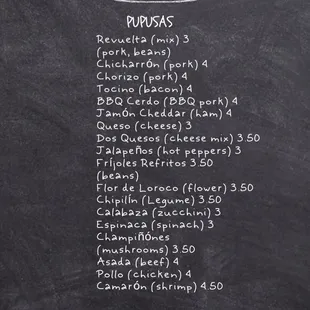 PUPUSAS
Revuelta (mix) 3
(pork, beans)
Chicharrón (pork) 4
Chorizo (pork) 4
Tocino (bacon) 4
BBQ Cerdo (BBQ pork) 4
Jamón Cheddar (ham) 4
Queso (cheese) 3
Dos Quesos (cheese mix) 3.50
Jalapeños (hot peppers) 3
Fríjoles Refritos 3.50
(beans)
Flor de Loroco (flower) 3.50
Chipilín (Legume) 3.50
Calabaza (zucchini) 3
Espinaca (spinach) 3
Champiñónes
(mushrooms) 3.50
Asada (beef) 4
Pollo (chicken) 4
Camarón (shrimp) 4.50